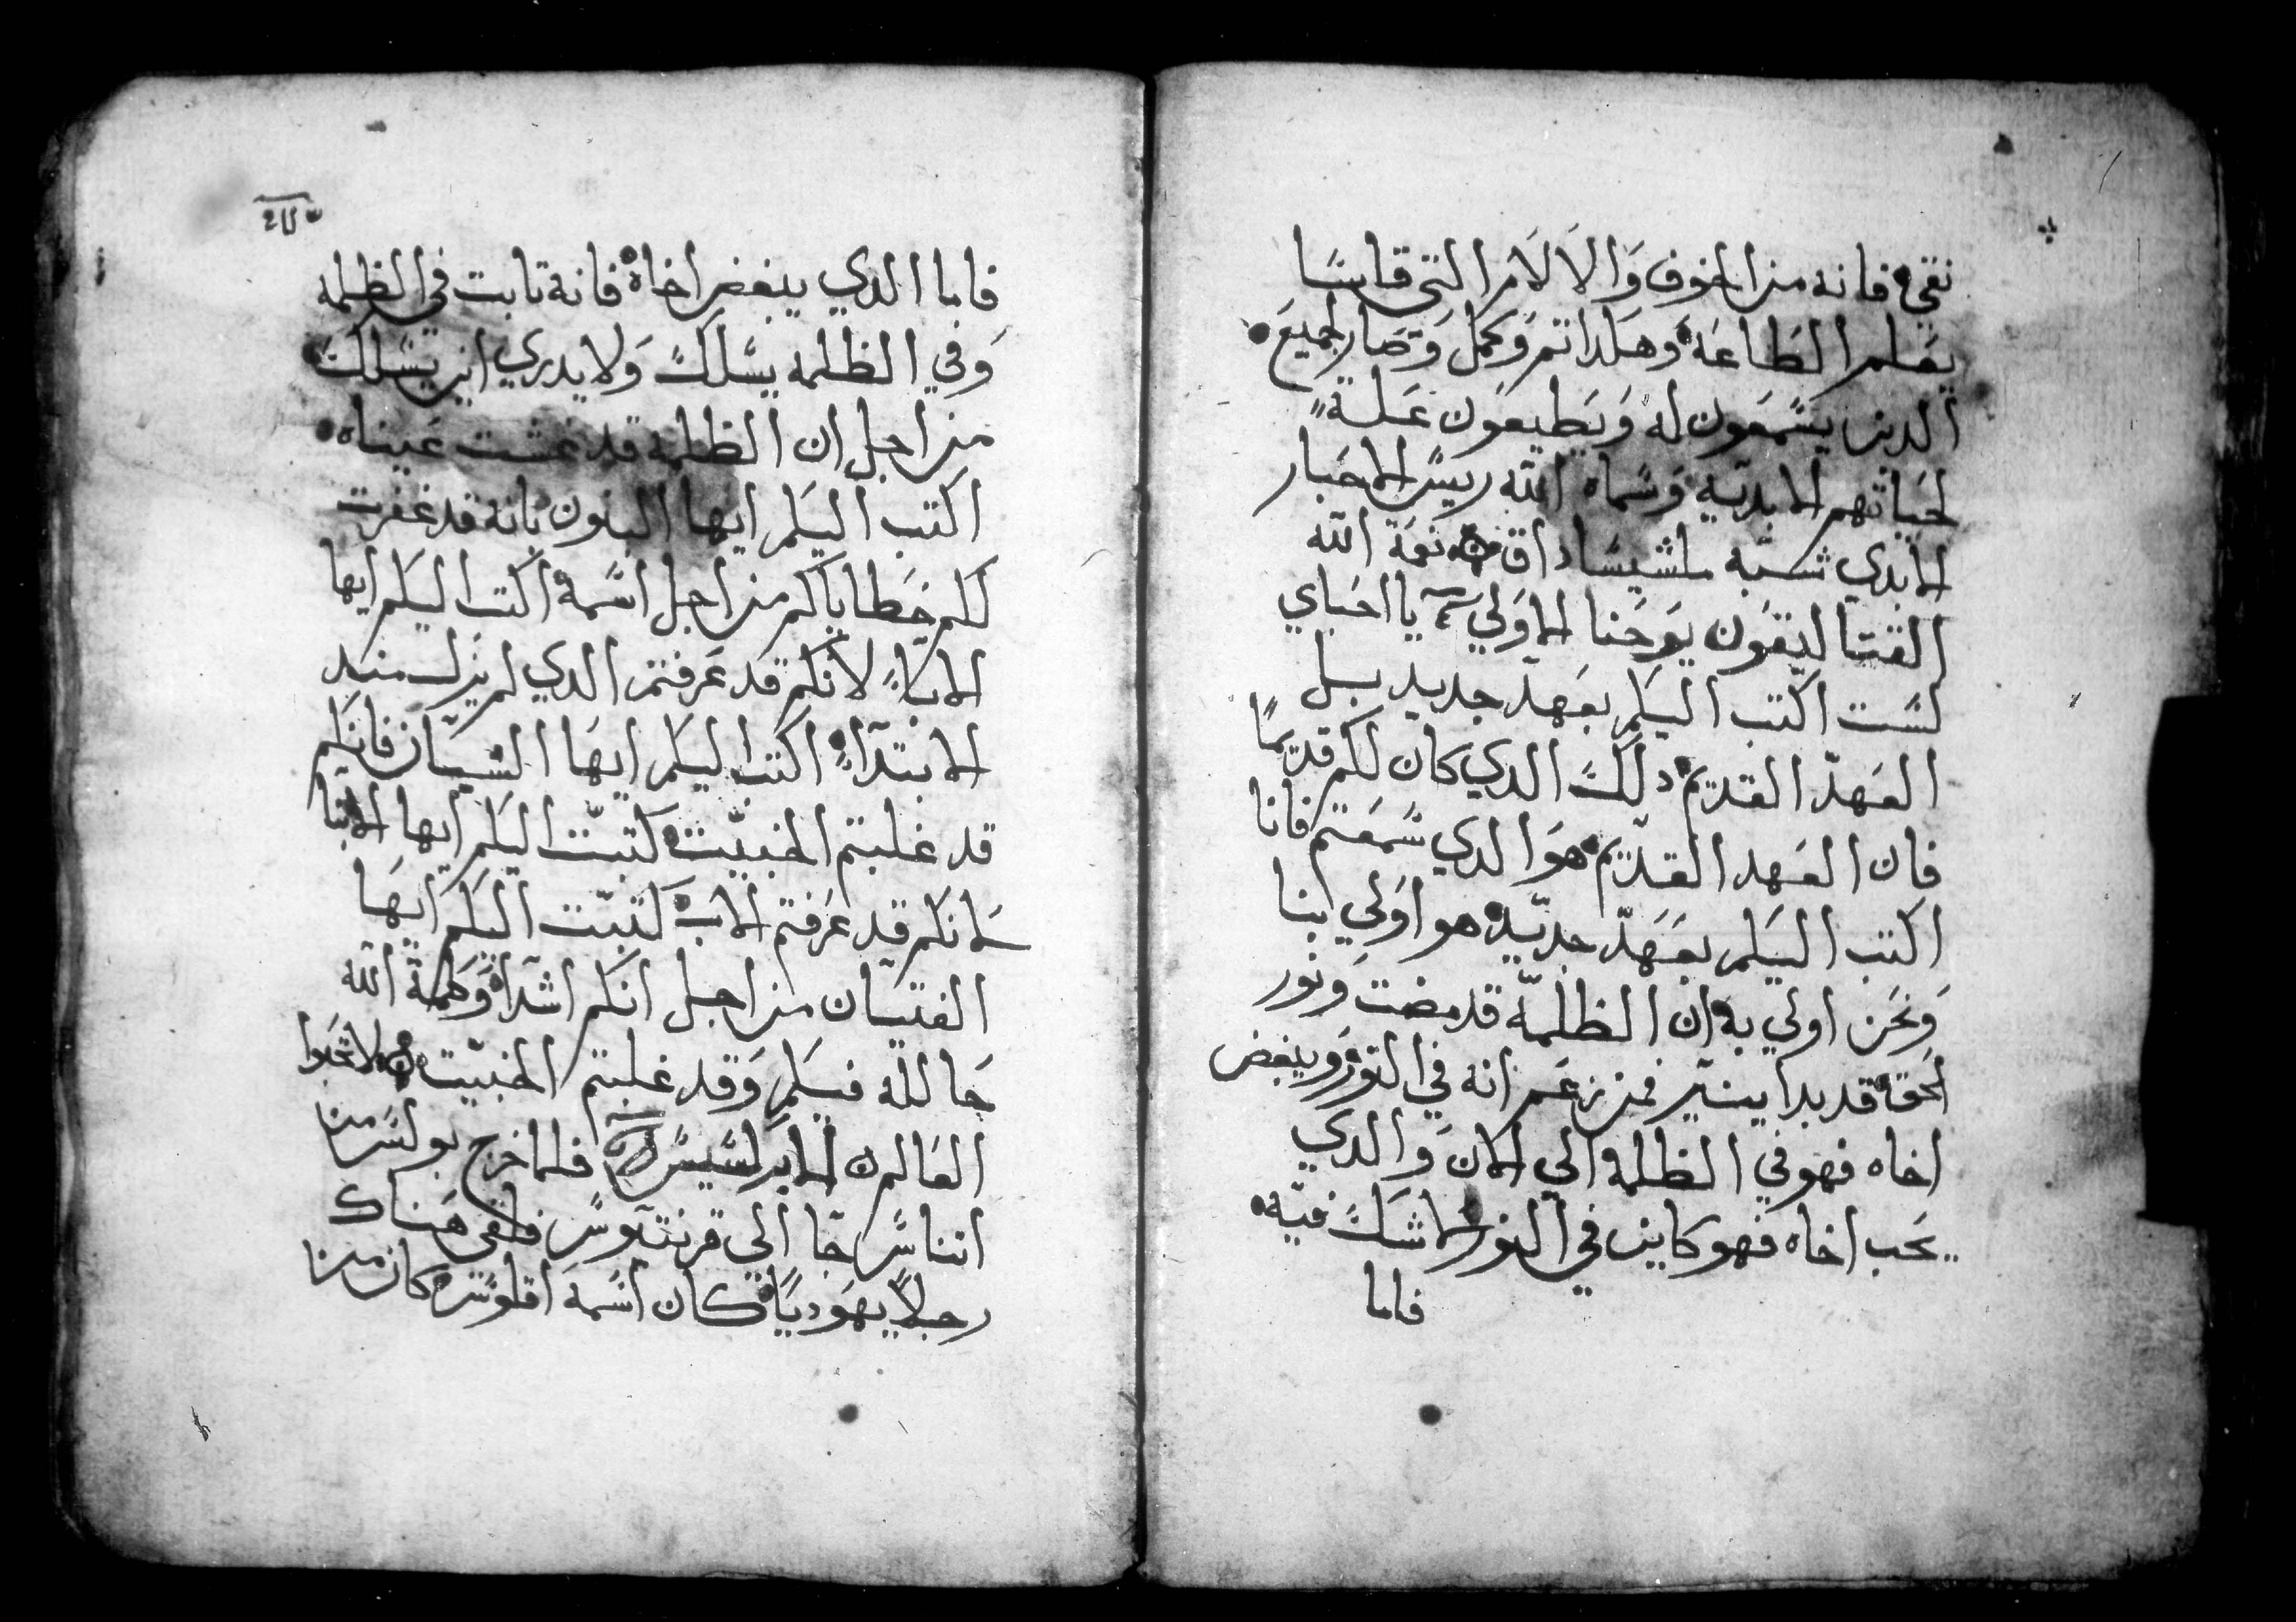 نقي فانه من الخوف والالام التي قاسا
يعلم الطاعه وهكدا تم وكمل وصار لجميع
الدين يسمعون له ويطيعون علة
لحياتهم الابدية وسماه الله رييس الاحبار
الابدي شبه ملشيساداق نعمة الله
القتاليقون يوحنا الاولي يا احباي
لست اكتب اليكم بعهد جديد بل
العهد القديم دلك الدي كان لكم قديما
فان العهد القديم هو الدي سمعتم فانا
اكتب اليكم بعهد جديد هو اولي بنا
ونحن اولي به ان الظلمة قد مضت ونور
الحق قد بدا ينير فمن زعم انه في النور ويبغض
اخاه فهو في الظلمة الي الان والدي
يحب اخاه فهو كاين في النور لا شك فيه
فاما
فاما الدي يبغض اخاه فانه تابت في الظلمه
وفي الظلمه يسلك ولا يدري اين يسلك
من اجل ان الظلمه قد غشت عيناه
اكتب اليكم ايها البنون بانه قد غفرت
لكم خطاياكم من اجل اسمه اكتب اليكم ايها
الابا لانكم قد عرفتم الدي لم يزل منذ
الابتداء اكتب اليكم ايها الشبان فانكم
قد غلبتم الخبيت كتبت اليكم ايها الابنا
لانكم قد عرفتم الاب كتبت اليكم ايها
الفتيان من اجل انكم اشدا وكلمة الله
حالله فيكم وقد غلبتم الخبيت لا تحبوا
العالم الابركسيس فلما خرج بولس من
اتناس جا الي قرنتيوس فلقي هناك
رجلا يهوديا كان اسمه اقلوس كان من